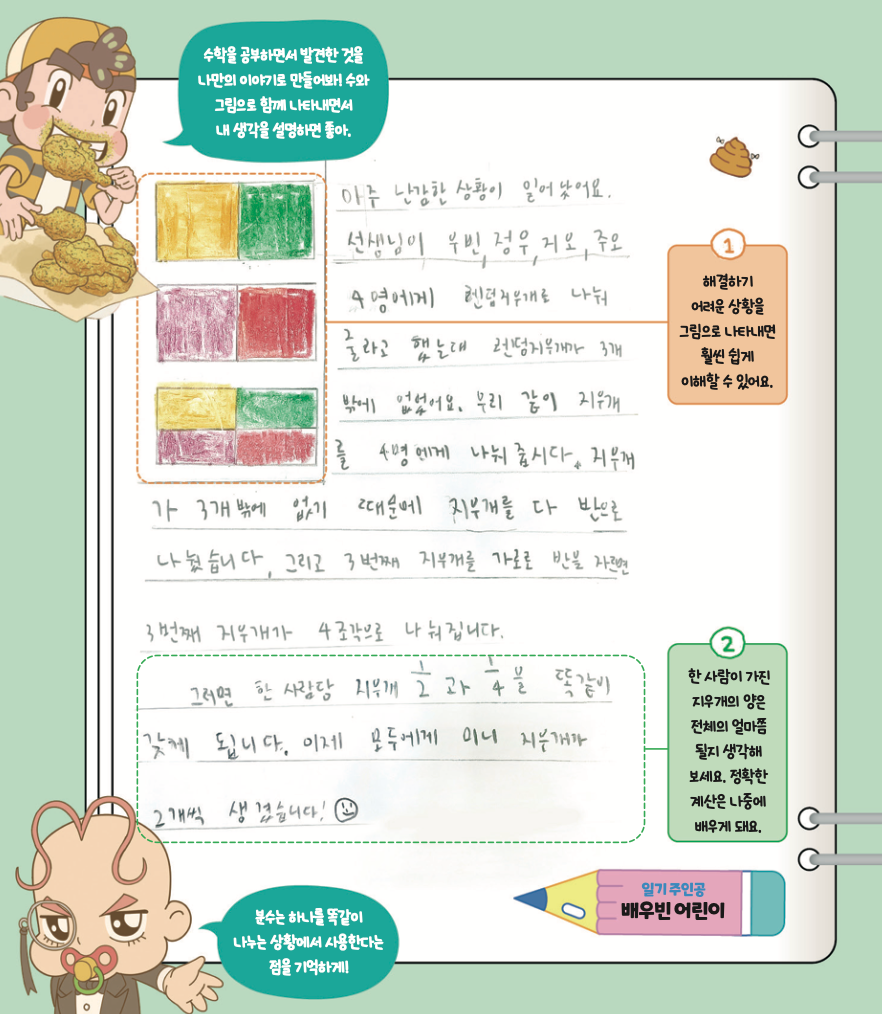 수학을 공부하면서 발견한 것을
나만의 이야기로 만들어봐! 수와
그림으로 함께 나타내면서
내 생각을 설명하면 좋아.
아주 난감한 상황이 일어 낫어요.
선생님이 우빈, 정우, 지오, 주오
4명에게 렌덤지우개로 나눠
줄라고 했는대 런덤지우개가 3개
밖에 없었어요. 우리 같이 지우개
를 4명에게 나눠 줍시다. 지우개
가 3개 밖에 없기 때문에 지우개를 다 반으로
나눴습니다. 그리고 3번째 지우개를 가로로 반블 자르면
3번째 지우개가 4조각으로 나눠집니다.
그러면 한 사람당 지우개 1/2 과 1/4 을 똑같이
갖게 됩니다. 이제 모두에게 미니 지우개가
2개씩 생겼습니다!
1
해결하기
어려운 상황을
그림으로 나타내면
훨씬 쉽게
이해할 수 있어요.
2
한 사람이 가진
지우개의 양은
전체의 얼마쯤
될지 생각해
보세요. 정확한
계산은 나중에
배우게 돼요.
일기 주인공
배우빈 어린이
분수는 하나를 똑같이
나누는 상황에서 사용한다는
점을 기억하게!